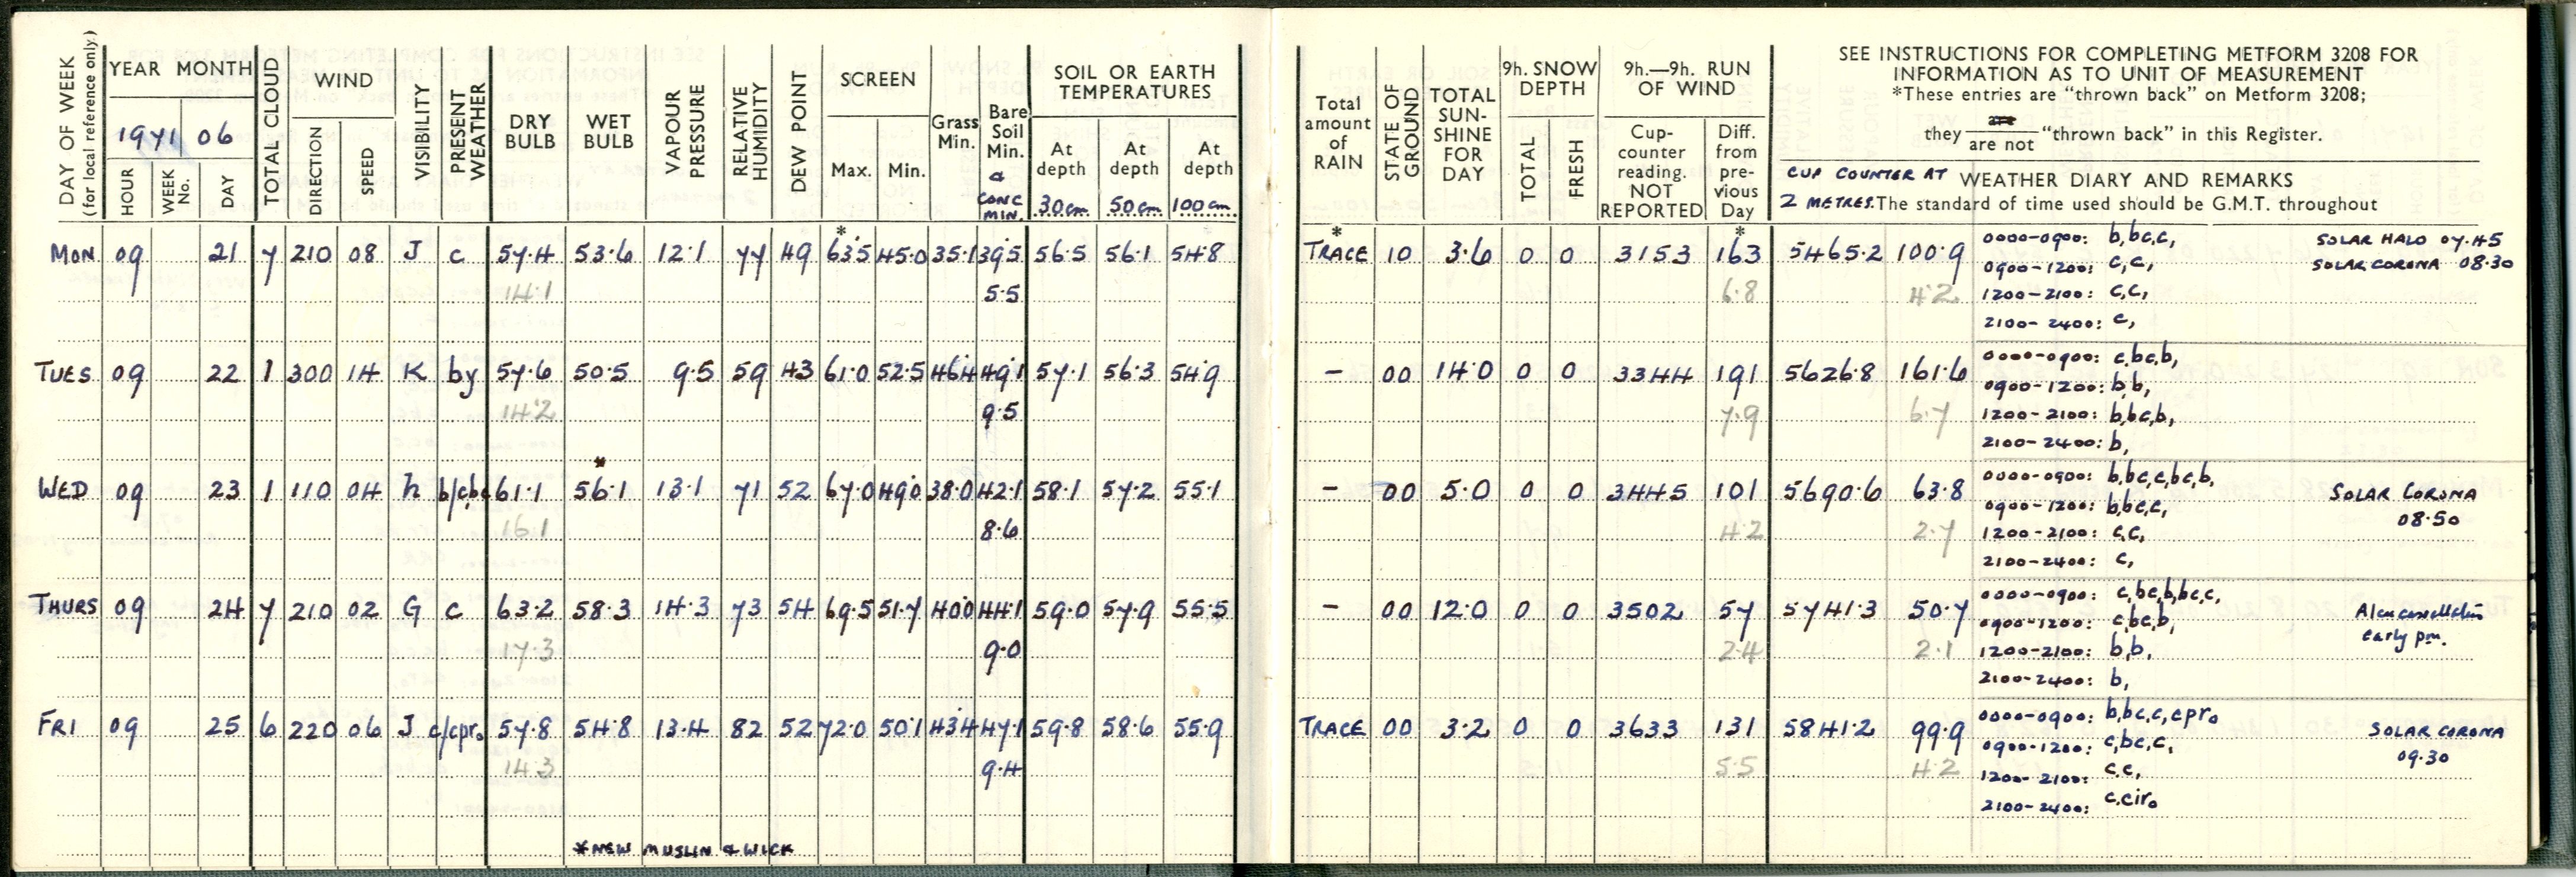 DAY OF WEEK
(for local reference only.)
YEAR MONTH
1971 06
HOUR
WEEK No.
DAY
TOTAL CLOUD
WIND
DIRECTION
SPEED
VISIBILITY
PRESENT WEATHER
DRY BULB
WET BULB
VAPOUR PRESSURE
RELATIVE HUMIDITY
DEW POINT
SCREEN
Max. Min.
Grass Min.
Bare Soil Min.
& CONC MIN.
SOIL OR EARTH TEMPERATURES
At depth 30cm
At depth 50cm
At depth 100cm
Total amount of RAIN
STATE OF GROUND
TOTAL SUN-SHINE FOR DAY
9h. SNOW DEPTH
TOTAL
FRESH
9h.—9h. RUN OF WIND
Cup-counter reading. NOT REPORTED
Diff. from pre-vious Day
SEE INSTRUCTIONS FOR COMPLETING METFORM 3208 FOR
INFORMATION AS TO UNIT OF MEASUREMENT
*These entries are "thrown back" on Metform 3208;
they are / are not "thrown back" in this Register.
CUP COUNTER AT 2 METRES.
WEATHER DIARY AND REMARKS
The standard of time used should be G.M.T. throughout
* * *
MON 09 21 7 210 08 J c 57.4 53.6 12.1 77 49 63.5 45.0 35.1 39.5 56.5 56.1 54.8 TRACE 10 3.6 0 0 3153 163 5465.2 100.9 0000-0900: b,bc,c, SOLAR HALO 07.45
0900-1200: c,c, SOLAR CORONA 08.30
14.1 5.5 6.8 4.2 1200-2100: c,c,
2100-2400: c,
TUES 09 22 1 300 14 K by 57.6 50.5 9.5 59 43 61.0 52.5 46.4 49.1 57.1 56.3 54.9 – 00 14.0 0 0 3344 191 5626.8 161.6 0000-0900: c,bc,b,
0900-1200: b,b,
14.2 9.5 7.9 6.7 1200-2100: b,bc,b,
2100-2400: b,
*
WED 09 23 1 110 04 h b/cbc 61.1 56.1 13.1 71 52 67.0 49.0 38.0 42.1 58.1 57.2 55.1 – 00 5.0 0 0 3445 101 5690.6 63.8 0000-0900: b,bc,c,bc,b, SOLAR CORONA
0900-1200: b,bc,c, 08.50
16.1 8.6 4.2 2.7 1200-2100: c,c,
2100-2400: c,
THURS 09 24 7 210 02 G c 63.2 58.3 14.3 73 54 69.5 51.7 40.0 44.1 59.0 57.9 55.5 – 00 12.0 0 0 3502 57 5741.3 50.7 0000-0900: c,bc,b,bc,c,
0900-1200: c,bc,b, early pm.
17.3 9.0 2.4 2.1 1200-2100: b,b,
2100-2400: b,
FRI 09 25 6 220 06 J c/cpro 57.8 54.8 13.4 82 52 72.0 50.1 43.4 47.1 59.8 58.6 55.9 TRACE 00 3.2 0 0 3633 131 5841.2 99.9 0000-0900: b,bc,c,cpro SOLAR CORONA
0900-1200: c,bc,c, 09.30
14.3 9.4 5.5 4.2 1200-2100: c,c,
2100-2400: c,ciro
* NEW MUSLIN & WICK